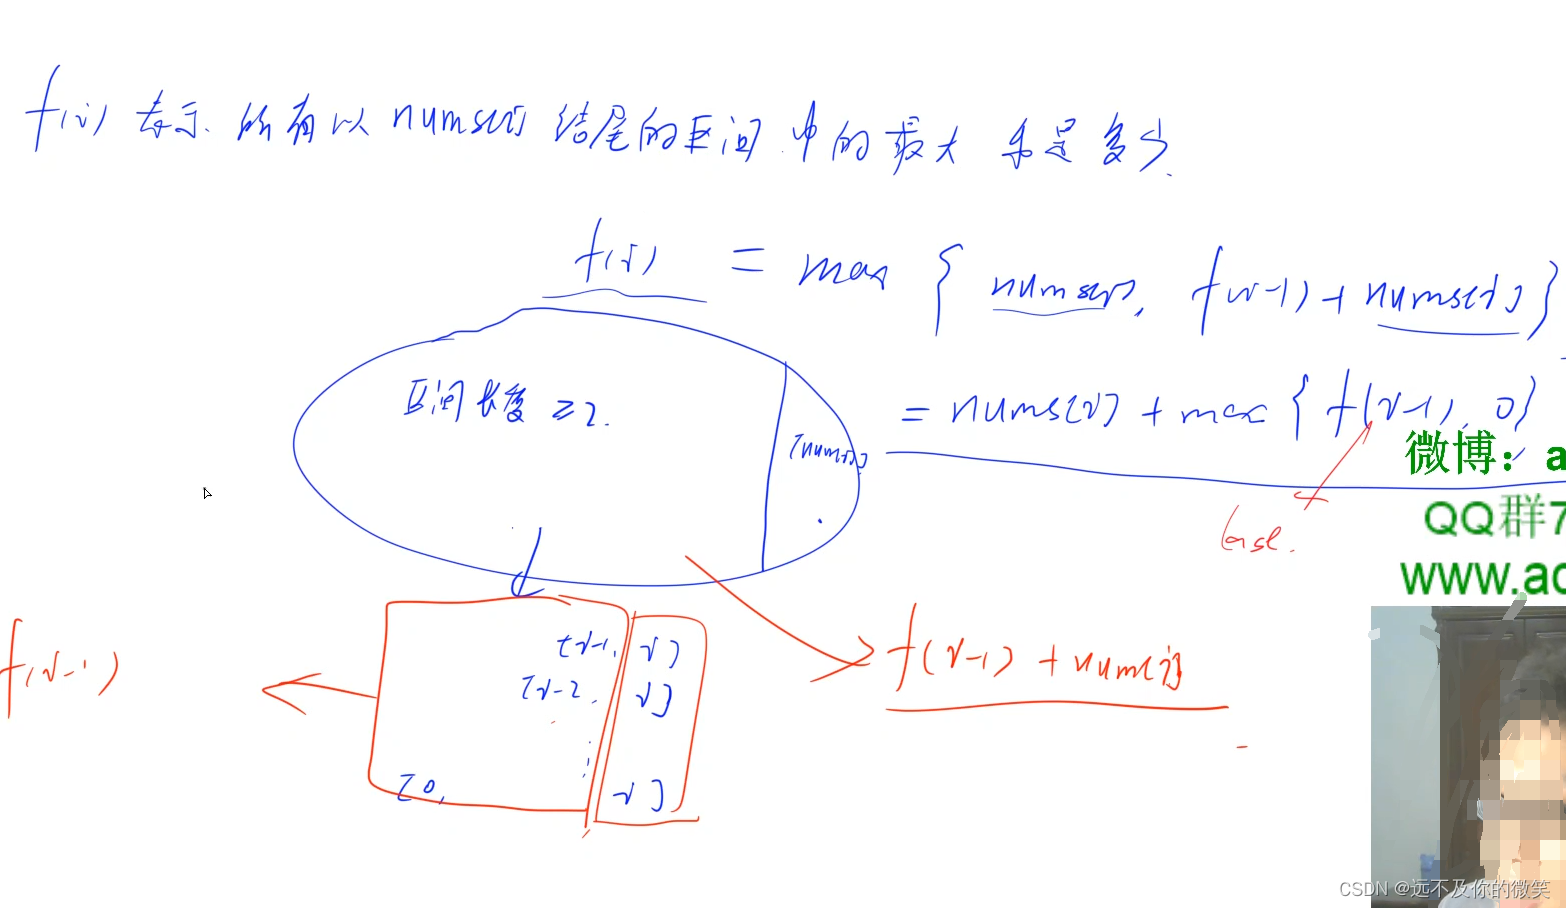 f(i) 表示 所有以 nums[i] 结尾的区间中的最大和是多少.
f(i) = max { nums[i], f(i-1) + nums[i] }
区间长度 ≥2.
= nums[i] + max { f(i-1), 0 }
[nums[i]]
微博：a
last.
QQ群7
www.ac
[i-1, i]
f(i-1)
f(i-1) + nums[i]
[i-2, i]
[0, i]
CSDN @远不及你的微笑